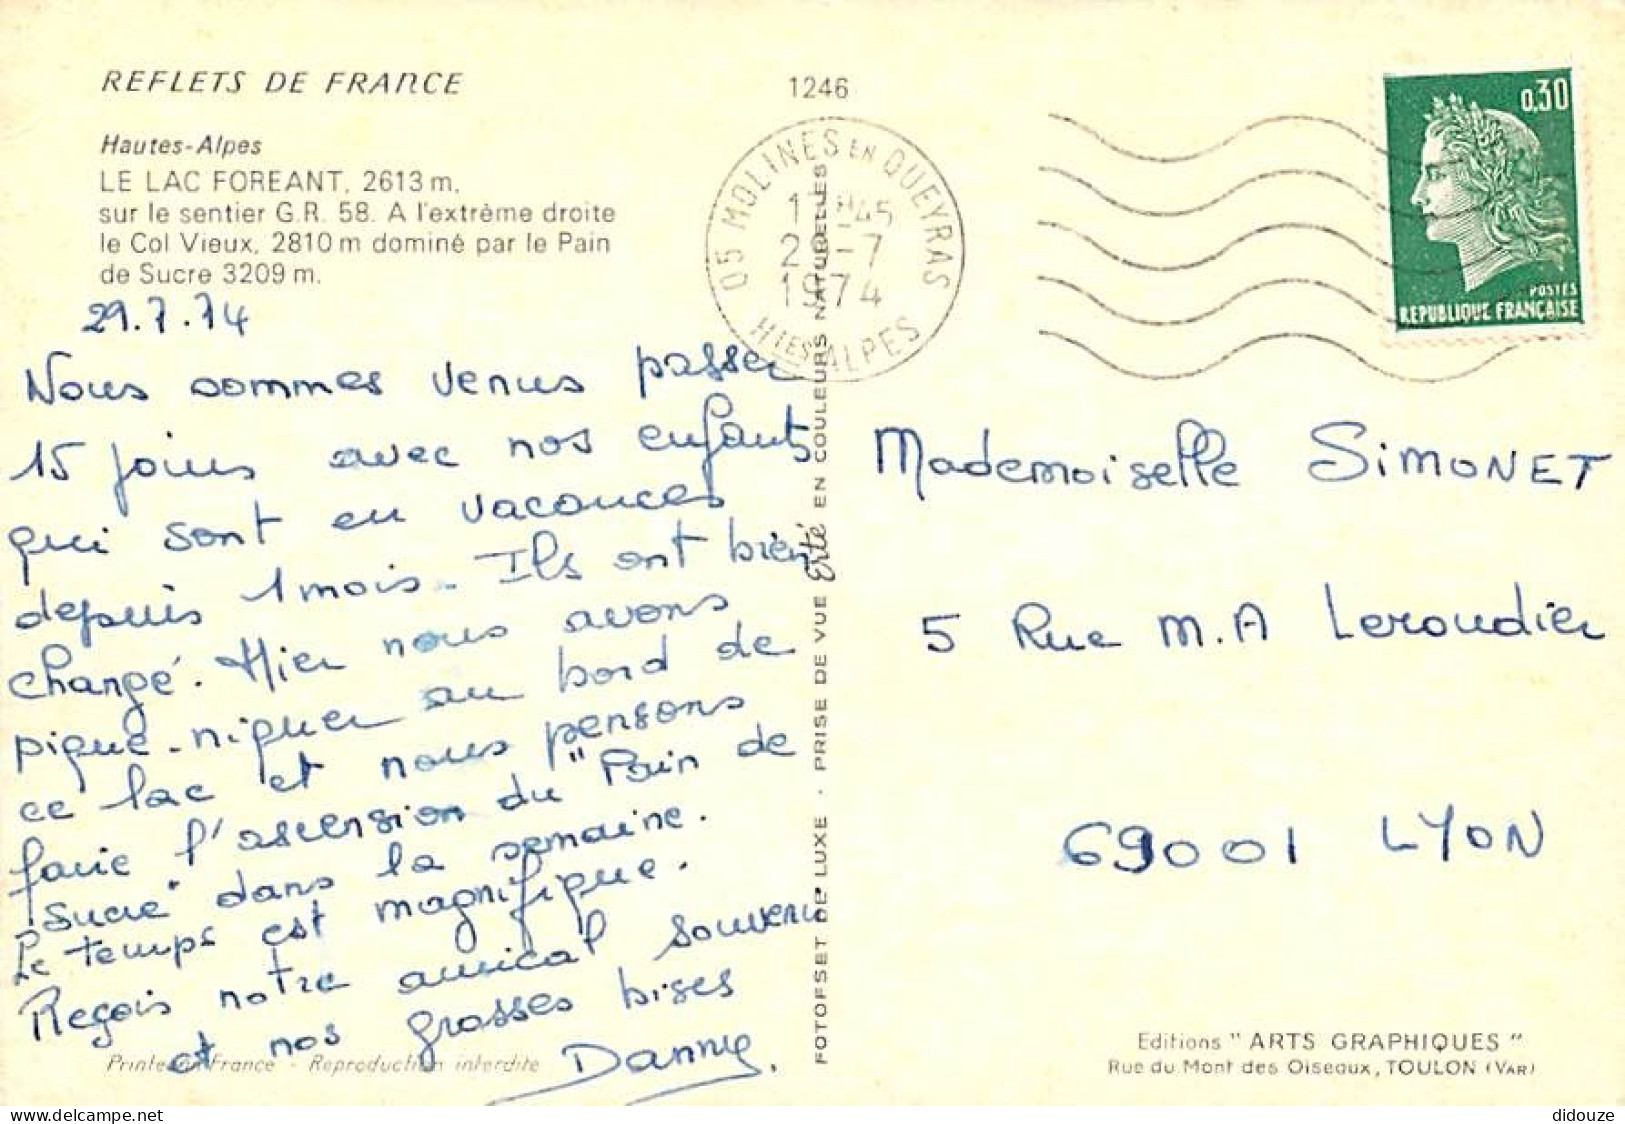 REFLETS DE FRANCE
1246
Hautes-Alpes
LE LAC FOREANT, 2613 m.
sur le sentier G.R. 58. A l'extrème droite
le Col Vieux, 2810 m dominé par le Pain
de Sucre 3209 m.
05 MOLINES EN QUEYRAS
17H45
29-7
1974
HTES ALPES
0,30
POSTES
REPUBLIQUE FRANÇAISE
29.7.74
Nous sommes venus passer
15 jours avec nos enfants
qui sont en vacances
depuis 1 mois. Ils ont bien
changé. Hier nous avons
pique-niquer au bord de
ce lac et nous pensons
faire l'ascension du "Pain de
Sucre" dans la semaine.
Le temps est magnifique.
Reçois notre amical souvenir
et nos grosses bises
Danny.
Mademoiselle SIMONET
5 Rue M.A Leroudier
69001 LYON
FOTOFSET DE LUXE . PRISE DE VUE Erté EN COULEURS NATURELLES
Printed in France - Reproduction interdite
Editions "ARTS GRAPHIQUES"
Rue du Mont des Oiseaux, TOULON (VAR)
didouze